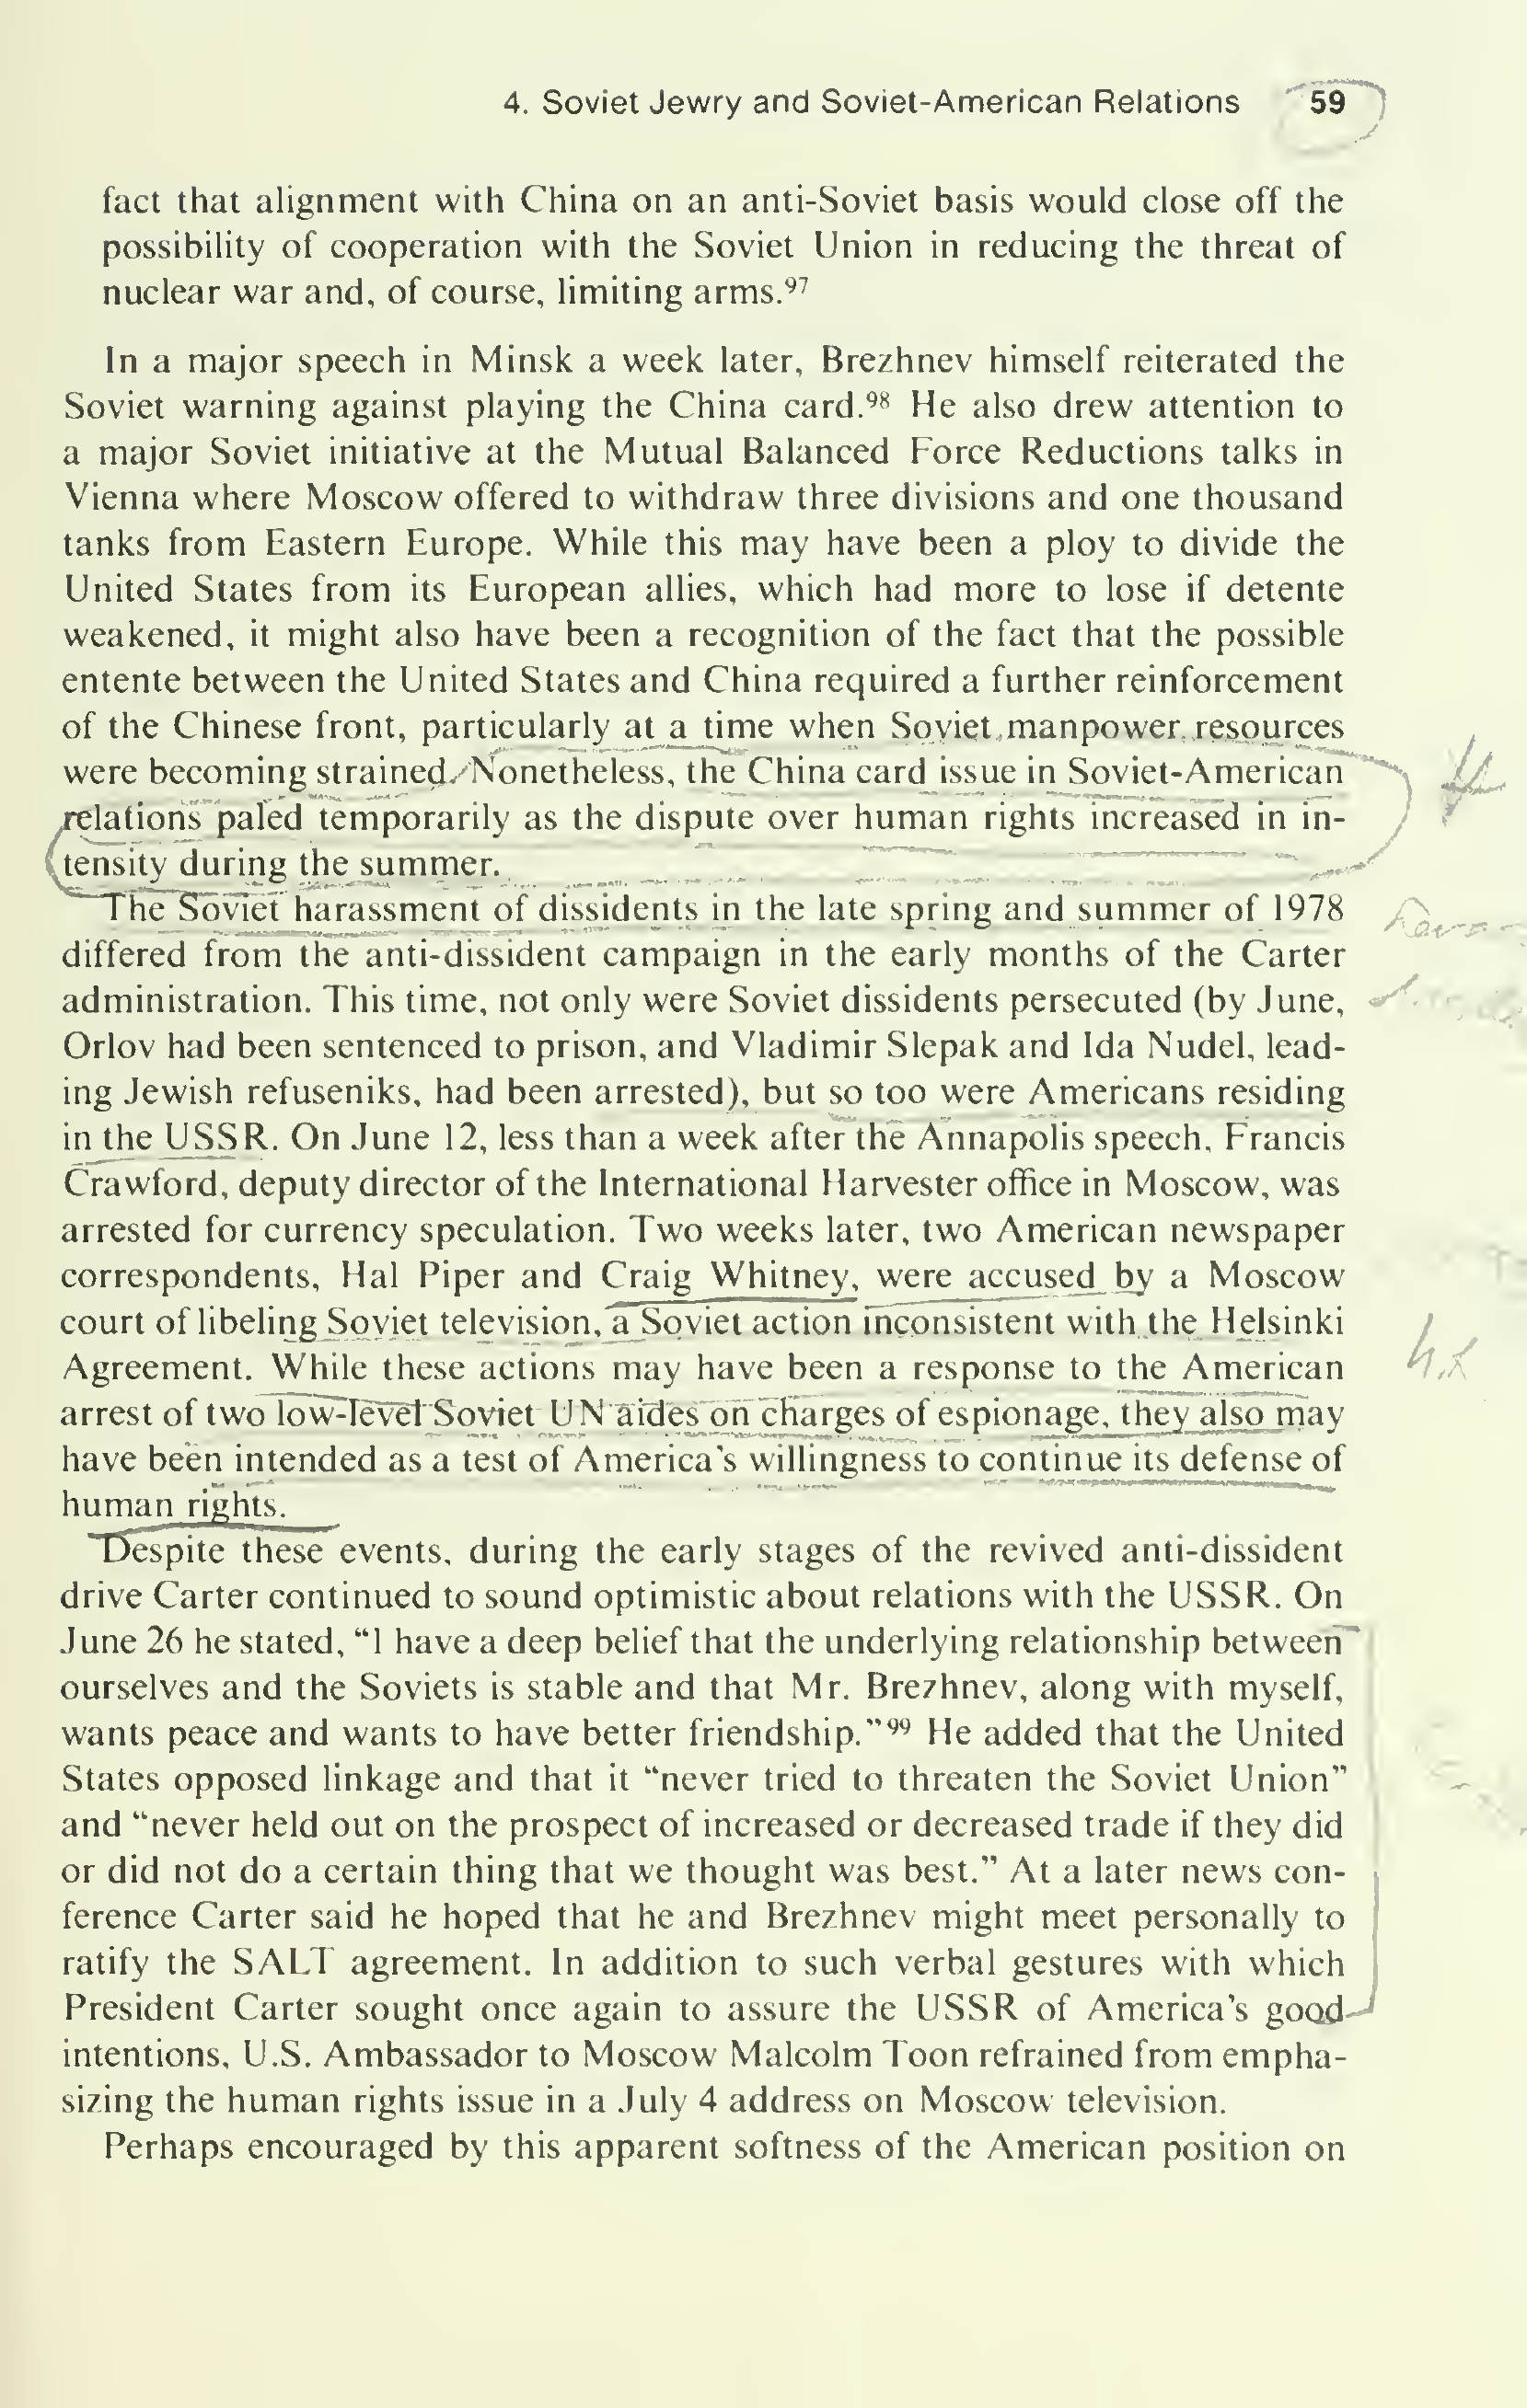 4. Soviet Jewry and Soviet-American Relations 59
fact that alignment with China on an anti-Soviet basis would close off the
possibility of cooperation with the Soviet Union in reducing the threat of
nuclear war and, of course, limiting arms.⁹⁷
In a major speech in Minsk a week later, Brezhnev himself reiterated the
Soviet warning against playing the China card.⁹⁸ He also drew attention to
a major Soviet initiative at the Mutual Balanced Force Reductions talks in
Vienna where Moscow offered to withdraw three divisions and one thousand
tanks from Eastern Europe. While this may have been a ploy to divide the
United States from its European allies, which had more to lose if detente
weakened, it might also have been a recognition of the fact that the possible
entente between the United States and China required a further reinforcement
of the Chinese front, particularly at a time when Soviet manpower resources
were becoming strained. Nonetheless, the China card issue in Soviet-American
relations paled temporarily as the dispute over human rights increased in in-
tensity during the summer.
The Soviet harassment of dissidents in the late spring and summer of 1978
differed from the anti-dissident campaign in the early months of the Carter
administration. This time, not only were Soviet dissidents persecuted (by June,
Orlov had been sentenced to prison, and Vladimir Slepak and Ida Nudel, lead-
ing Jewish refuseniks, had been arrested), but so too were Americans residing
in the USSR. On June 12, less than a week after the Annapolis speech, Francis
Crawford, deputy director of the International Harvester office in Moscow, was
arrested for currency speculation. Two weeks later, two American newspaper
correspondents, Hal Piper and Craig Whitney, were accused by a Moscow
court of libeling Soviet television, a Soviet action inconsistent with the Helsinki
Agreement. While these actions may have been a response to the American
arrest of two low-level Soviet UN aides on charges of espionage, they also may
have been intended as a test of America's willingness to continue its defense of
human rights.
Despite these events, during the early stages of the revived anti-dissident
drive Carter continued to sound optimistic about relations with the USSR. On
June 26 he stated, "I have a deep belief that the underlying relationship between
ourselves and the Soviets is stable and that Mr. Brezhnev, along with myself,
wants peace and wants to have better friendship."⁹⁹ He added that the United
States opposed linkage and that it "never tried to threaten the Soviet Union"
and "never held out on the prospect of increased or decreased trade if they did
or did not do a certain thing that we thought was best." At a later news con-
ference Carter said he hoped that he and Brezhnev might meet personally to
ratify the SALT agreement. In addition to such verbal gestures with which
President Carter sought once again to assure the USSR of America's good
intentions, U.S. Ambassador to Moscow Malcolm Toon refrained from empha-
sizing the human rights issue in a July 4 address on Moscow television.
Perhaps encouraged by this apparent softness of the American position on